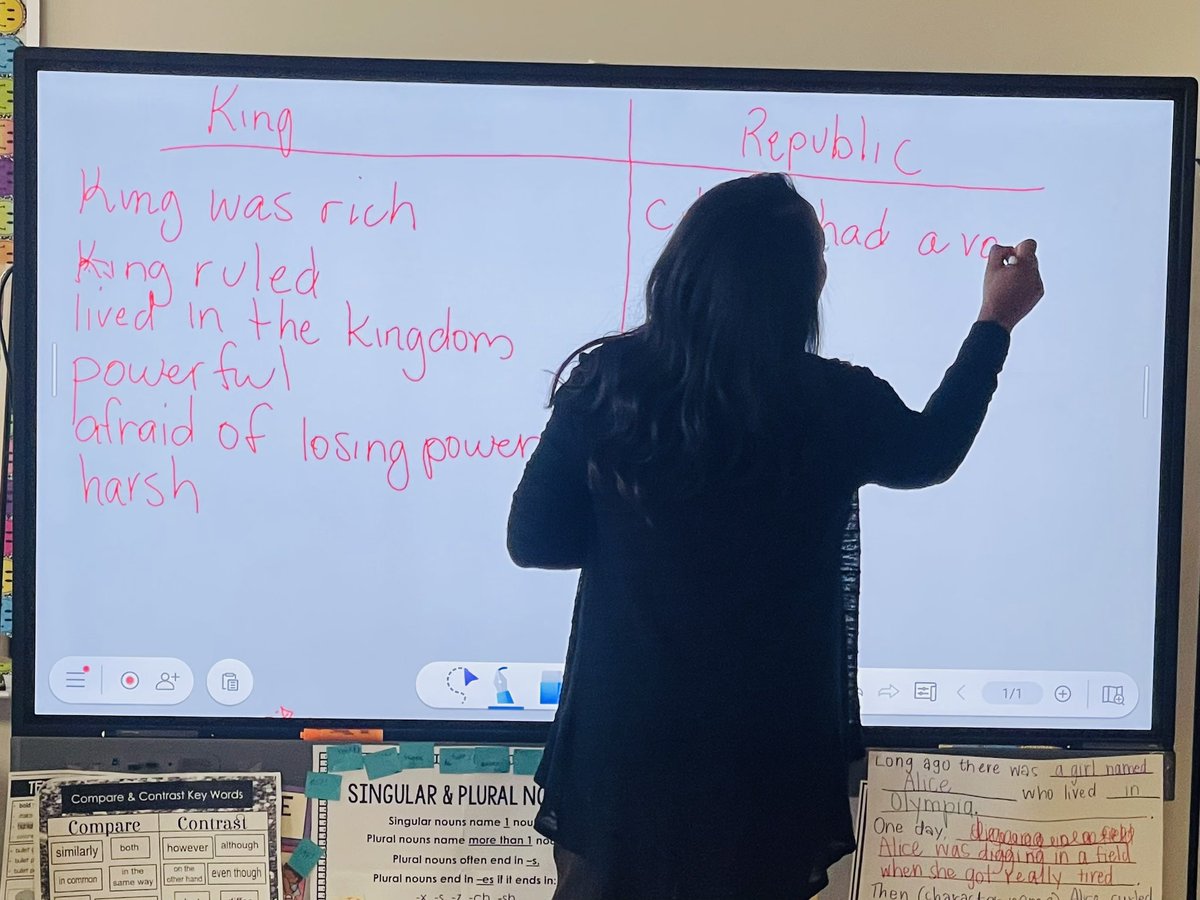 King
Republic
King was rich
had a
King ruled
lived in the kingdom
powerful
afraid of losing power
harsh
1/1
Compare & Contrast Key Words
Compare
Contrast
similarly
both
however
although
in common
in the same way
on the other hand
even though
SINGULAR & PLURAL
Singular nouns name 1
Plural nouns name more than 1
Plural nouns often end in -s.
Plural nouns end in -es if it ends in:
-x -s -z -ch -sh
Long ago there was a girl named
Alice who lived in
Olympia.
One day,
Alice was digging in a field
when she got really tired.
Then
Alice curled